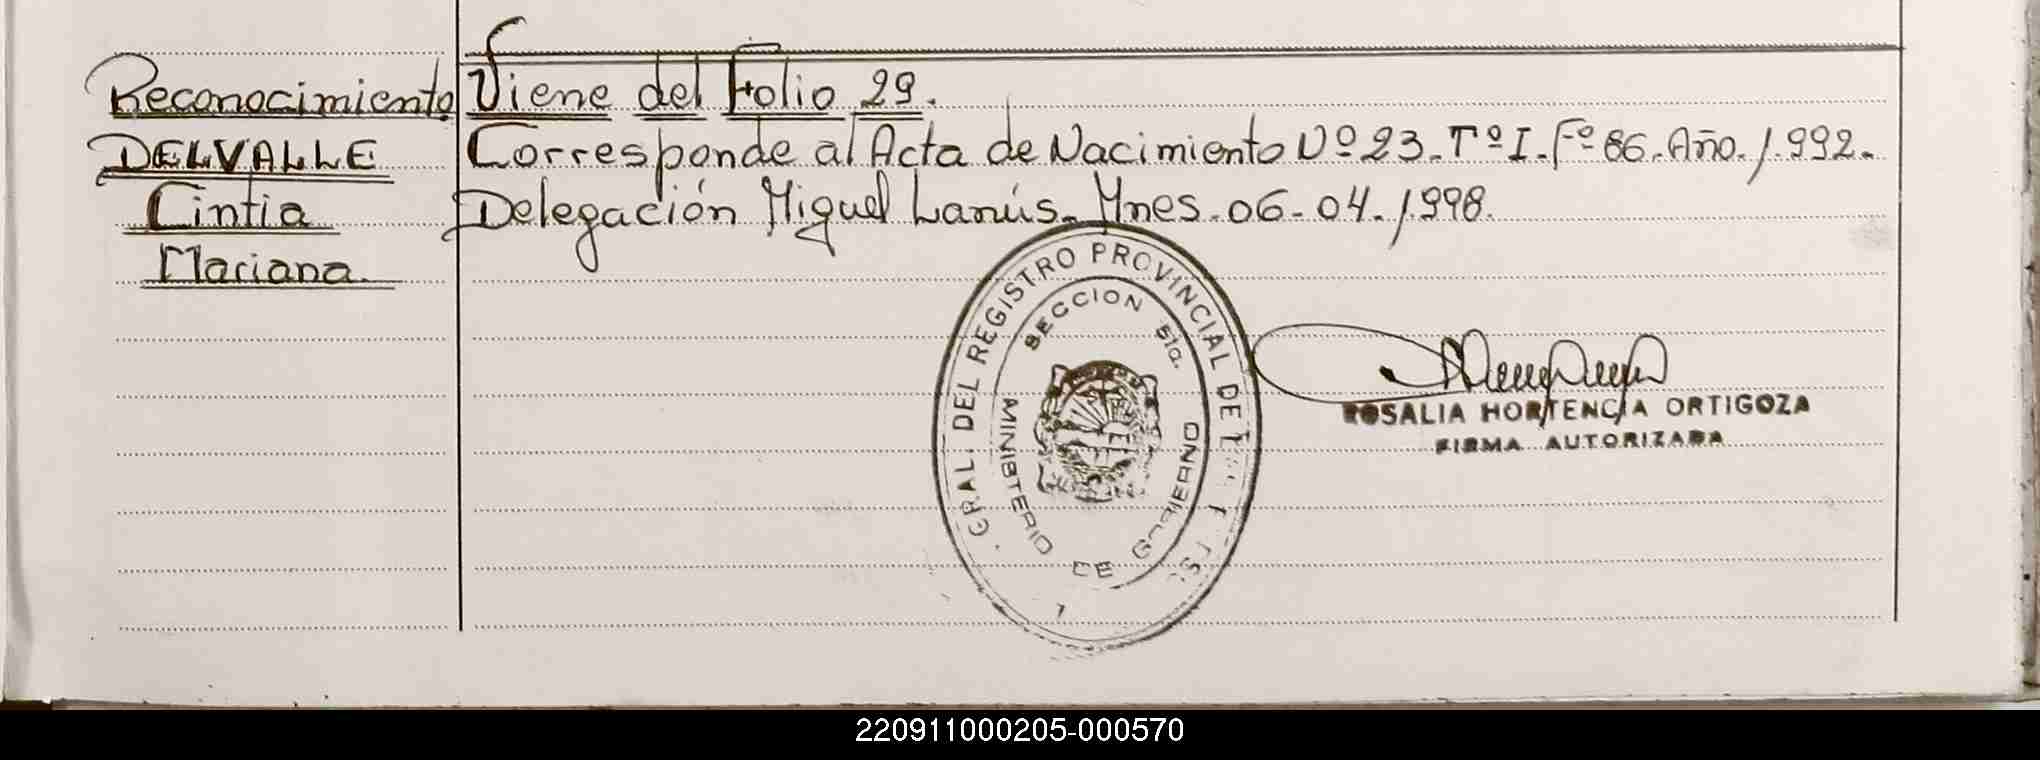 Reconocimiento
DELVALLE
Cintia
Mariana.
Viene del Folio 29.
Corresponde al Acta de Nacimiento Nº 23. Tº I. Fº 86. Año. 1.992.
Delegación Miguel Lanús. Mnes. 06-04.1998.
GRAL. DEL REGISTRO PROVINCIAL DE
SECCION 5ta.
MINISTERIO DE GOBIERNO
ROSALIA HORTENCIA ORTIGOZA
FIRMA AUTORIZADA
220911000205-000570